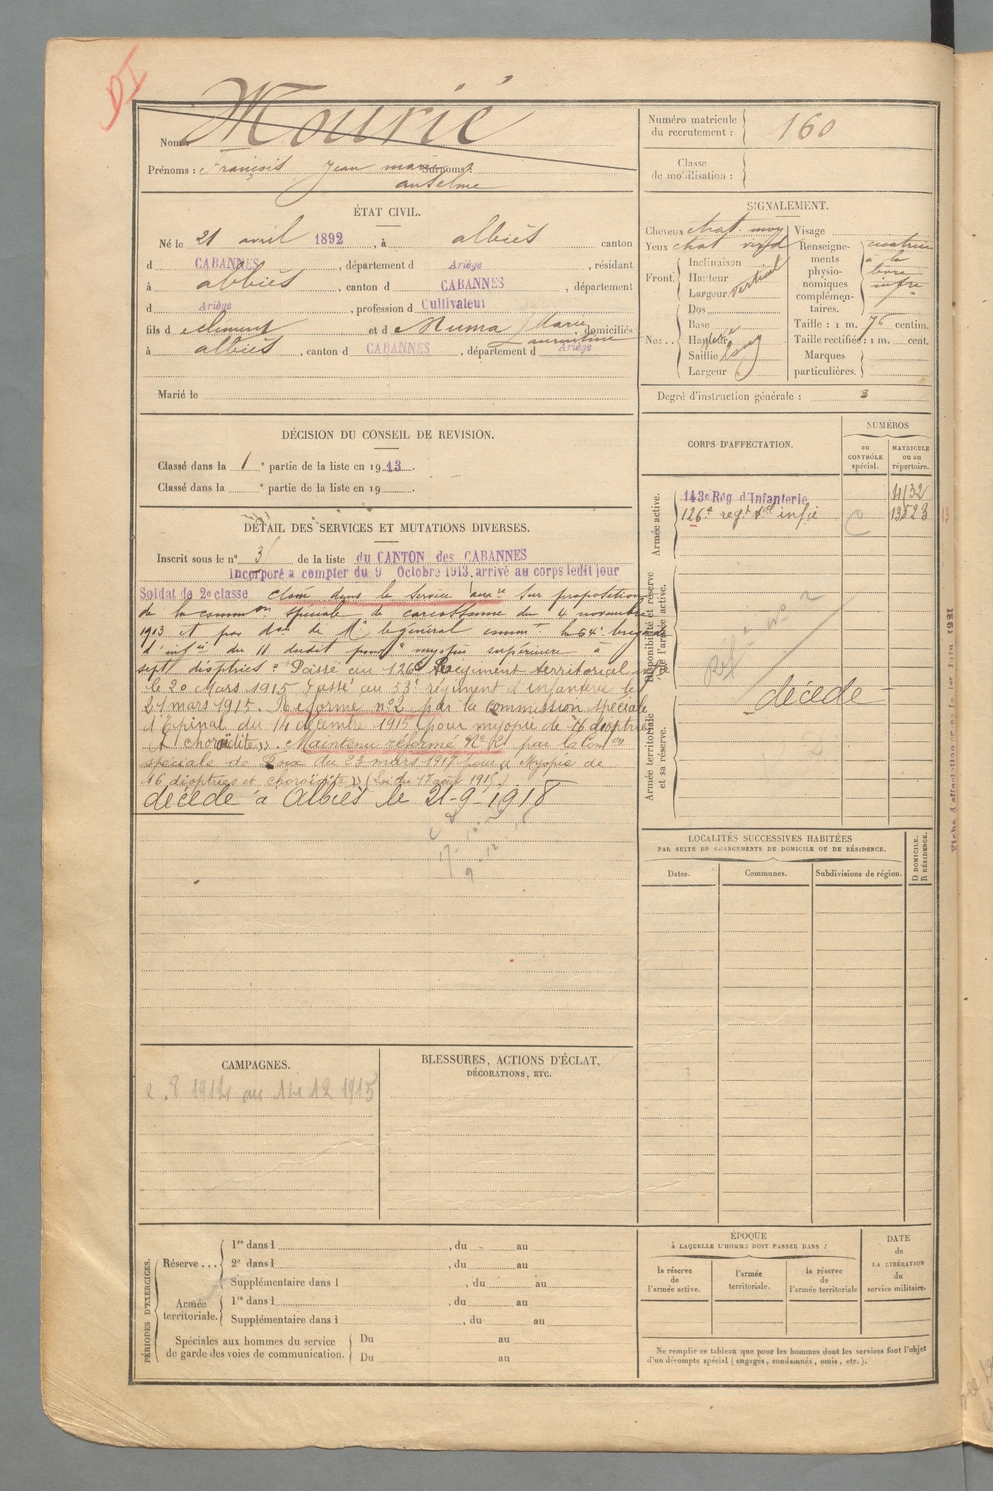 DI
Nom : Mourié
Prénoms : François Jean marie Surnoms :
anselme
Numéro matricule
du recrutement : 160
Classe
de mobilisation :
ÉTAT CIVIL.
Né le 21 avril 1892, à albiès canton
d CABANNES, département d Ariège, résidant
à albiès, canton d CABANNES, département
d Ariège, profession d Cultivateur
fils d climent et d Numa Marie domiciliés
à albiès, canton d CABANNES, département d Ariège
Marié le
SIGNALEMENT.
Cheveux chat. moy
Yeux chat verd
Front.
Inclinaison
Hauteur
Largeur
vertical
Nez...
Dos
Base
Hauteur
Saillie long
Largeur
Visage
Renseigne-
ments
physio-
nomiques
complémen-
taires.
à la
Taille : 1 m. 75 centim.
Taille rectifiée : 1 m. cent.
Marques
particulières.
Degré d'instruction générale : 3
DÉCISION DU CONSEIL DE REVISION.
Classé dans la 1e partie de la liste en 1913.
Classé dans la e partie de la liste en 19 .
DÉTAIL DES SERVICES ET MUTATIONS DIVERSES.
Inscrit sous le n° 3 de la liste du CANTON des CABANNES
Incorporé a compter du 9 Octobre 1913, arrivé au corps ledit jour
Soldat de 2e classe classé dans le service auxre sur proposition
de la common spéciale de carcassonne du 4 novembre
1913 et par don de Mr le général commt la 64e brigade
d'infrie du 11 dudit pour "myopie supérieure à
sept dioptries" Passé au 126e Régiment territorial inf
le 20 Mars 1915 Passé au 53e régiment d'infanterie le
21 mars 1915. Réformé n°2 par la commission spéciale
d'Épinal du 14 décembre 1915 (pour myopie de 16 dioptries
Choroïdite). Maintenu réformé No 2 par la Comon
spéciale de Foix du 23 mars 1917 pour « Myopie de
16 dioptries et choroïdite » (Loi du 17 août 1915)
décédé à Albiès le 21-9-1918
CORPS D'AFFECTATION.
NUMÉROS
au
CONTRÔLE
spécial.
MATRICULE
ou au
répertoire.
Armée active.
143e Rég d'Infanterie 4132
126e regt tal infie 13523
Disponibilité et réserve
de l'armée active.
Réfé n° 2
décédé
Armée territoriale
et sa réserve.
Fiche d'affectation en le 1er Juin 1921
LOCALITÉS SUCCESSIVES HABITÉES
PAR SUITE DE CHANGEMENTS DE DOMICILE OU DE RÉSIDENCE.
D DOMICILE.
R RÉSIDENCE.
Dates.
Communes.
Subdivisions de région.
CAMPAGNES.
2.8 1914 au 14 12 1915
BLESSURES, ACTIONS D'ÉCLAT,
DÉCORATIONS, ETC.
PÉRIODES D'EXERCICES.
Réserve...
1re dans l , du au
2e dans l , du au
Supplémentaire dans l , du au
Armée
territoriale.
1re dans l , du au
Supplémentaire dans l , du au
Spéciales aux hommes du service
de garde des voies de communication.
Du au
Du au
ÉPOQUE
À LAQUELLE L'HOMME DOIT PASSER DANS :
la réserve
de
l'armée active.
l'armée
territoriale.
la réserve
de
l'armée territoriale
DATE
de
LA LIBÉRATION
du
service militaire.
Ne remplir ce tableau que pour les hommes dont les services font l'objet
d'un décompte spécial (engagés, condamnés, omis, etc.).